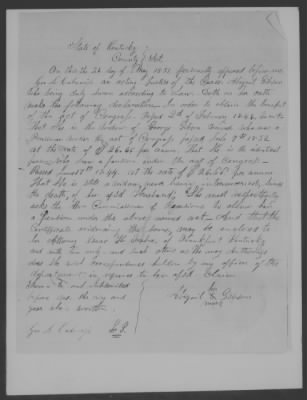 State of Kentucky
County Sct.
On this the 26 day of May 1851 personally appeared before me
Geo. A. an acting Justice of the Peace Abigail Gibson
who being duly sworn according to law. Doth on her oath
make the following declaration in order to obtain the benefit
of the act of Congress, passed 2nd of February 1848, to wit
That she is the widow of George Gibson who was a
Pensioner under the act of Congress passed July 7th 1832
at the rate of $26.66 per annum That she is the identical
person who drew a pension under the act of Congress
Passed June 17th 1844 at the rate of $26.66 per annum
That she is still a widow, never having intermarried, since
the death of her afsd Husband, She most respectfully
asks the Hon Commissioner of Pensions to allow her
a Pension under the above named act And that the
Certificate evidencing the same, may be enclosed to
her Attorney of Frankfort Kentucky
and with him only and such others as she may authorize
does she wish correspondence holden by any officer of the
Government in regard to her afsd Claim
Sworn to and Subscribed
before me the day and
year above written
her
Abigail X Gibson
mark
Geo. A. J.P.